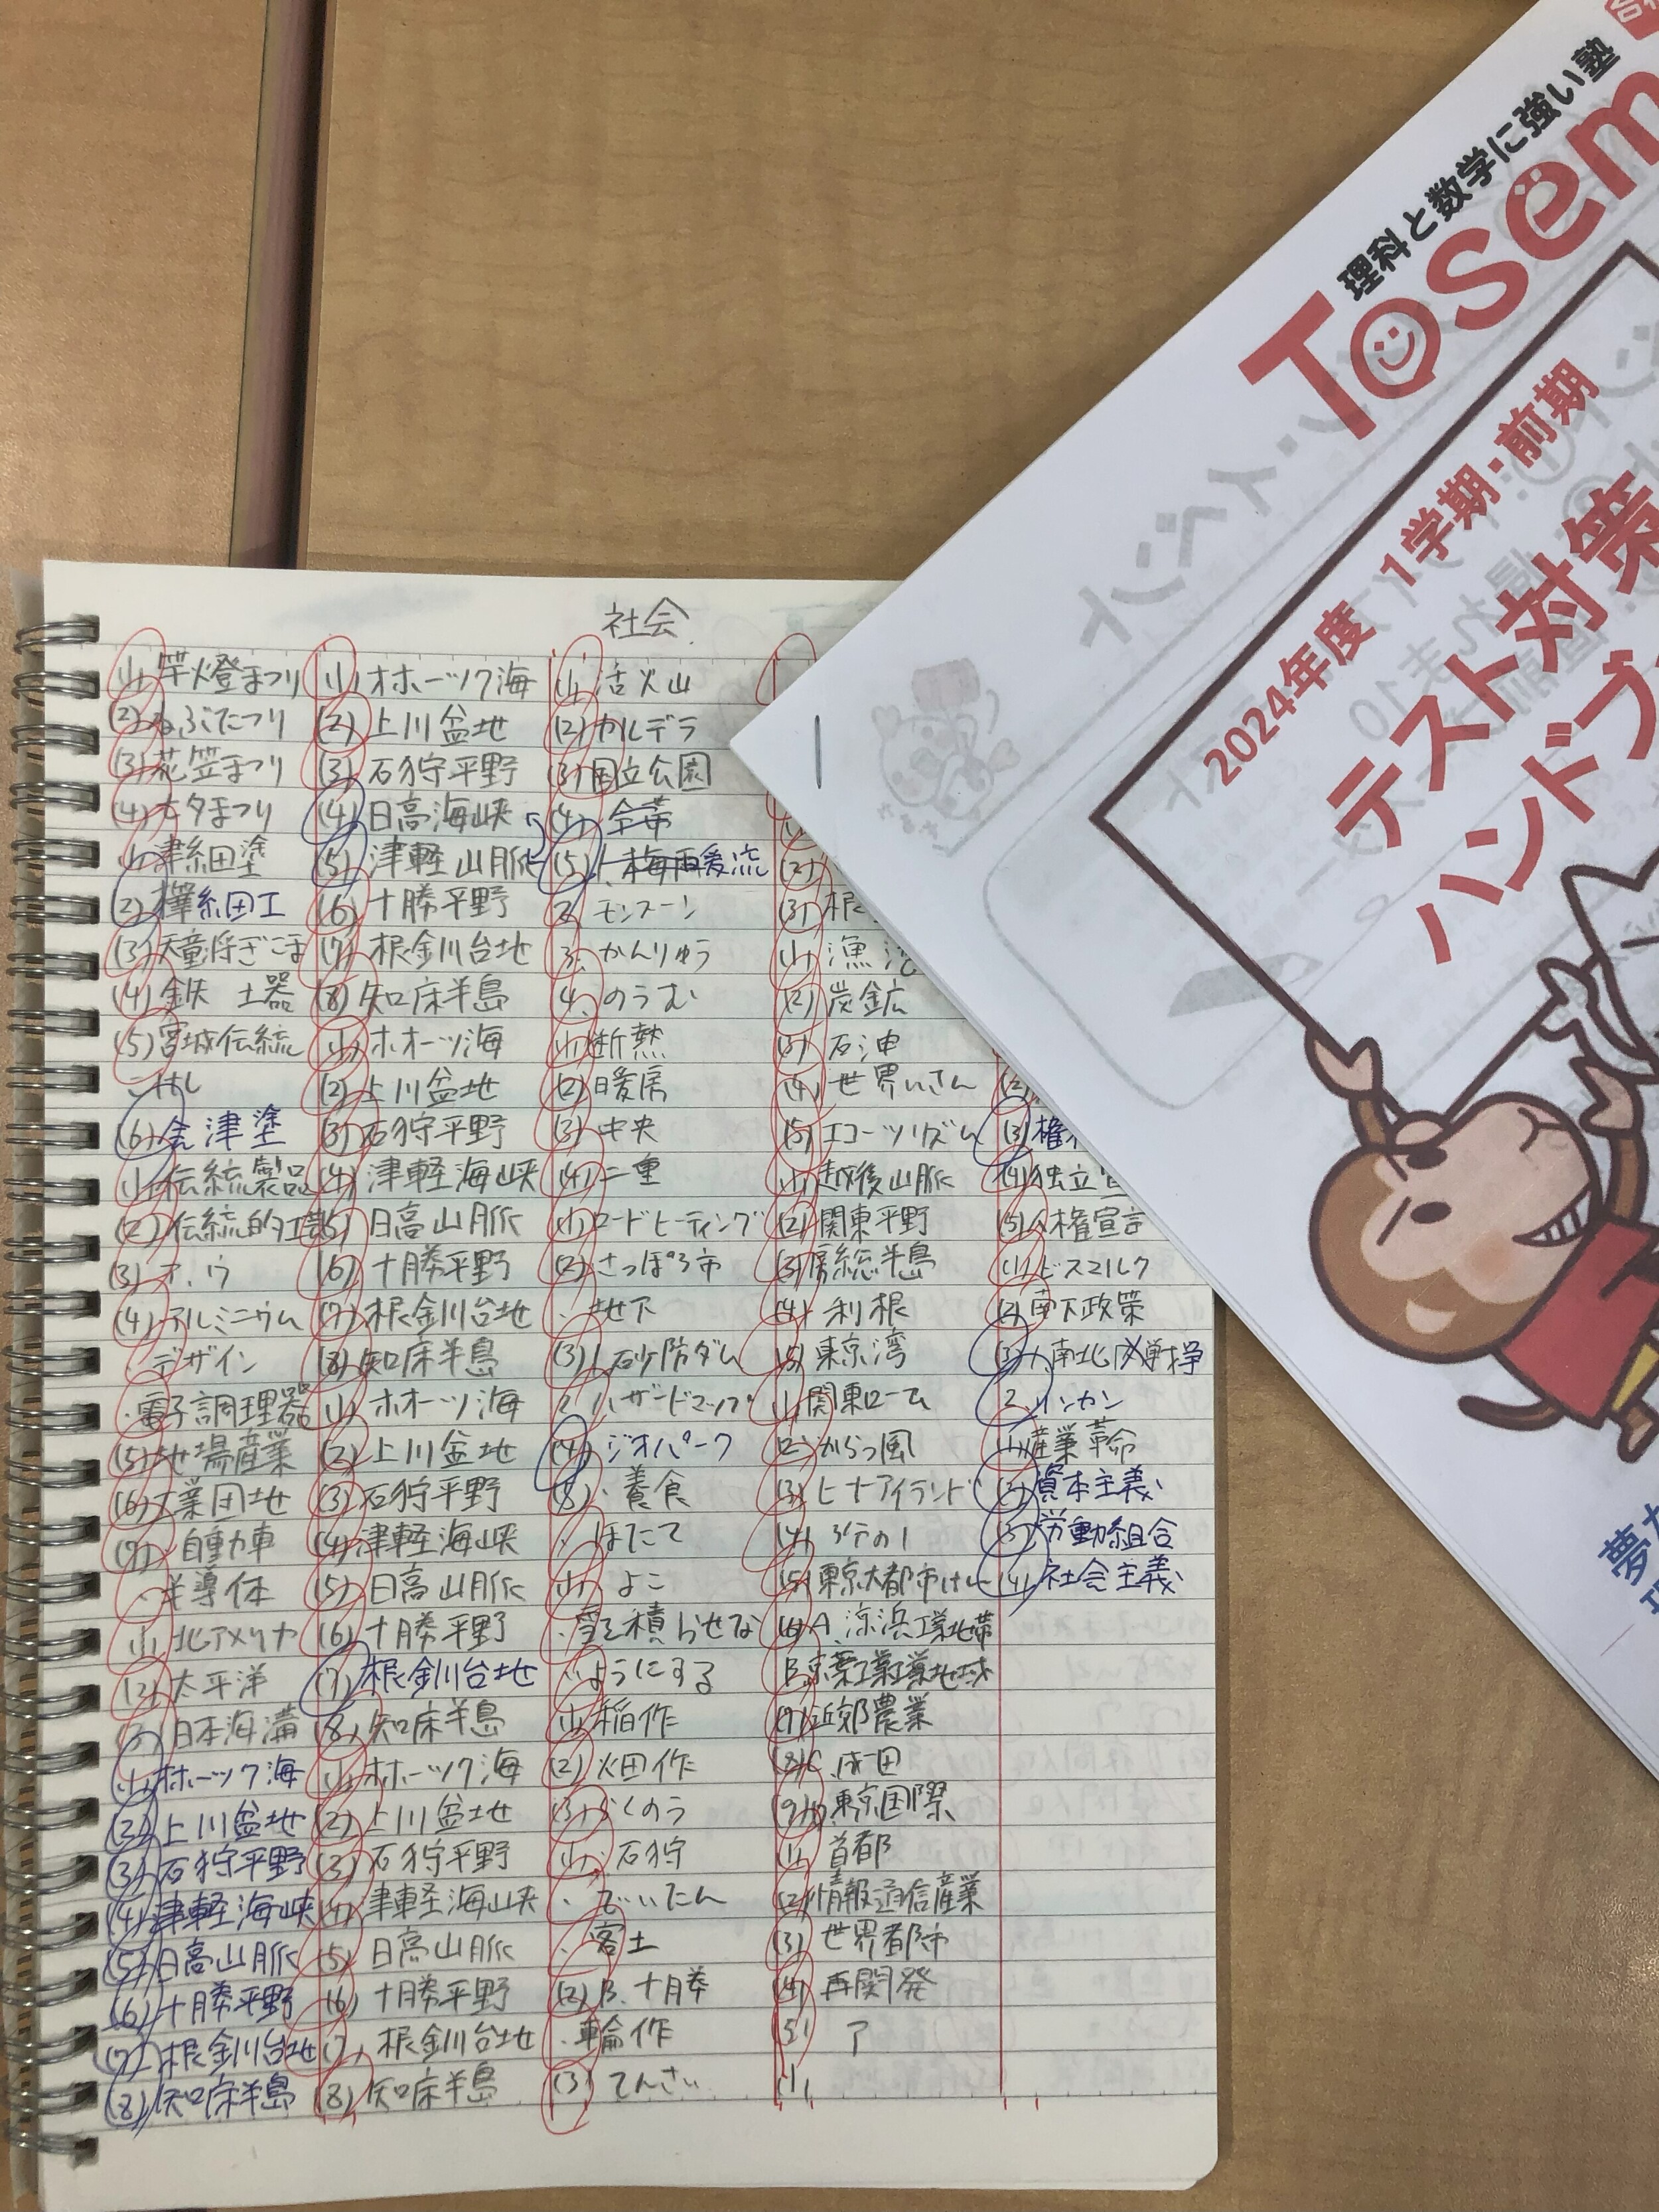 社会
(1) 竿燈まつり
(2) ねぶたつり
(3) 花笠まつり
(4) 七夕まつり
(1) 津細塗
(2) 樺細工
(3) 天童将ぎこま
(4) 鉄 土器
(5) 宮城伝統
こけし
(6) 会津塗
(1) 伝統製品
(2) 伝統的工芸
(3) ア、ウ
(4) アルミニウム
・デザイン
・電子調理器
(5) 地場産業
(6) 工業団地
(7) 自動車
・半導体
(1) 北アメリカ
(2) 太平洋
(3) 日本海溝
(1) ホホーツク海
(2) 上川盆地
(3) 石狩平野
(4) 津軽海峡
(5) 日高山脈
(6) 十勝平野
(7) 根釧台地
(8) 知床半島
(1) オホーツク海
(2) 上川盆地
(3) 石狩平野
(4) 日高海峡
(5) 津軽山脈
(6) 十勝平野
(7) 根釧台地
(8) 知床半島
(1) ホオーツ海
(2) 上川盆地
(3) 石狩平野
(4) 津軽海峡
(5) 日高山脈
(6) 十勝平野
(7) 根釧台地
(8) 知床半島
(1) ホオーツ海
(2) 上川盆地
(3) 石狩平野
(4) 津軽海峡
(5) 日高山脈
(6) 十勝平野
(7) 根釧台地
(8) 知床半島
(1) ホホーツク海
(2) 上川盆地
(3) 石狩平野
(4) 津軽海峡
(5) 日高山脈
(6) 十勝平野
(7) 根釧台地
(8) 知床半島
(1) 活火山
(2) カルデラ
(3) 国立公園
(4) 全帯
(5) 1. 梅雨暖流
2. モンスーン
3. かんりゅう
4. のうむ
(1) 断熱
(2) 暖房
(3) 中央
(4) 二重
(1) ロードヒーティング
(2) さっぽろ市
・地下
(3) 1. 砂防ダム
2 ハザードマップ
(4) ジオパーク
(5) ・養食
・ほたて
(1) よこ
・雪を積らせな
いようにする
(1) 稲作
(2) 畑作
(3) らくのう
(1) ・石狩
・でいたん
・客土
(2) B. 十勝
・輪作
(3) てんさい
(1)
(2)
(3) 根
(1) 漁
(2) 炭鉱
(3) 石油
(4) 世界いさん
(5) エコーツリズム
(1) 越後山脈
(2) 関東平野
(3) 房総半島
(4) 利根
(5) 東京湾
(1) 関東ローム
(2) からっ風
(3) ヒートアイランド
(4) 3分の1
(5) 東京大都市けん
(6) A. 京浜工業地帯
B. 京葉工業地域
(7) 近郊農業
(8) C. 成田
(9) D. 東京国際
(1) 首都
(2) 情報通信産業
(3) 世界都市
(4) 再開発
(5) ア
(1)
(2)
(3) 権
(4) 独立宣
(5) 人権宣言
(1) ビスマルク
(2) 南下政策
(3) 1. 南北戦争
2. リンカン
(1) 産業革命
(2) 資本主義
(3) 労動組合
(4) 社会主義
理科と数学に強い塾
Tosem
2024年度 1学期・前期
テスト対策
ハンドブ
夢